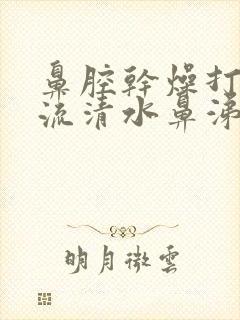 鼻腔幹燥打
流清水鼻涕
明月微雲